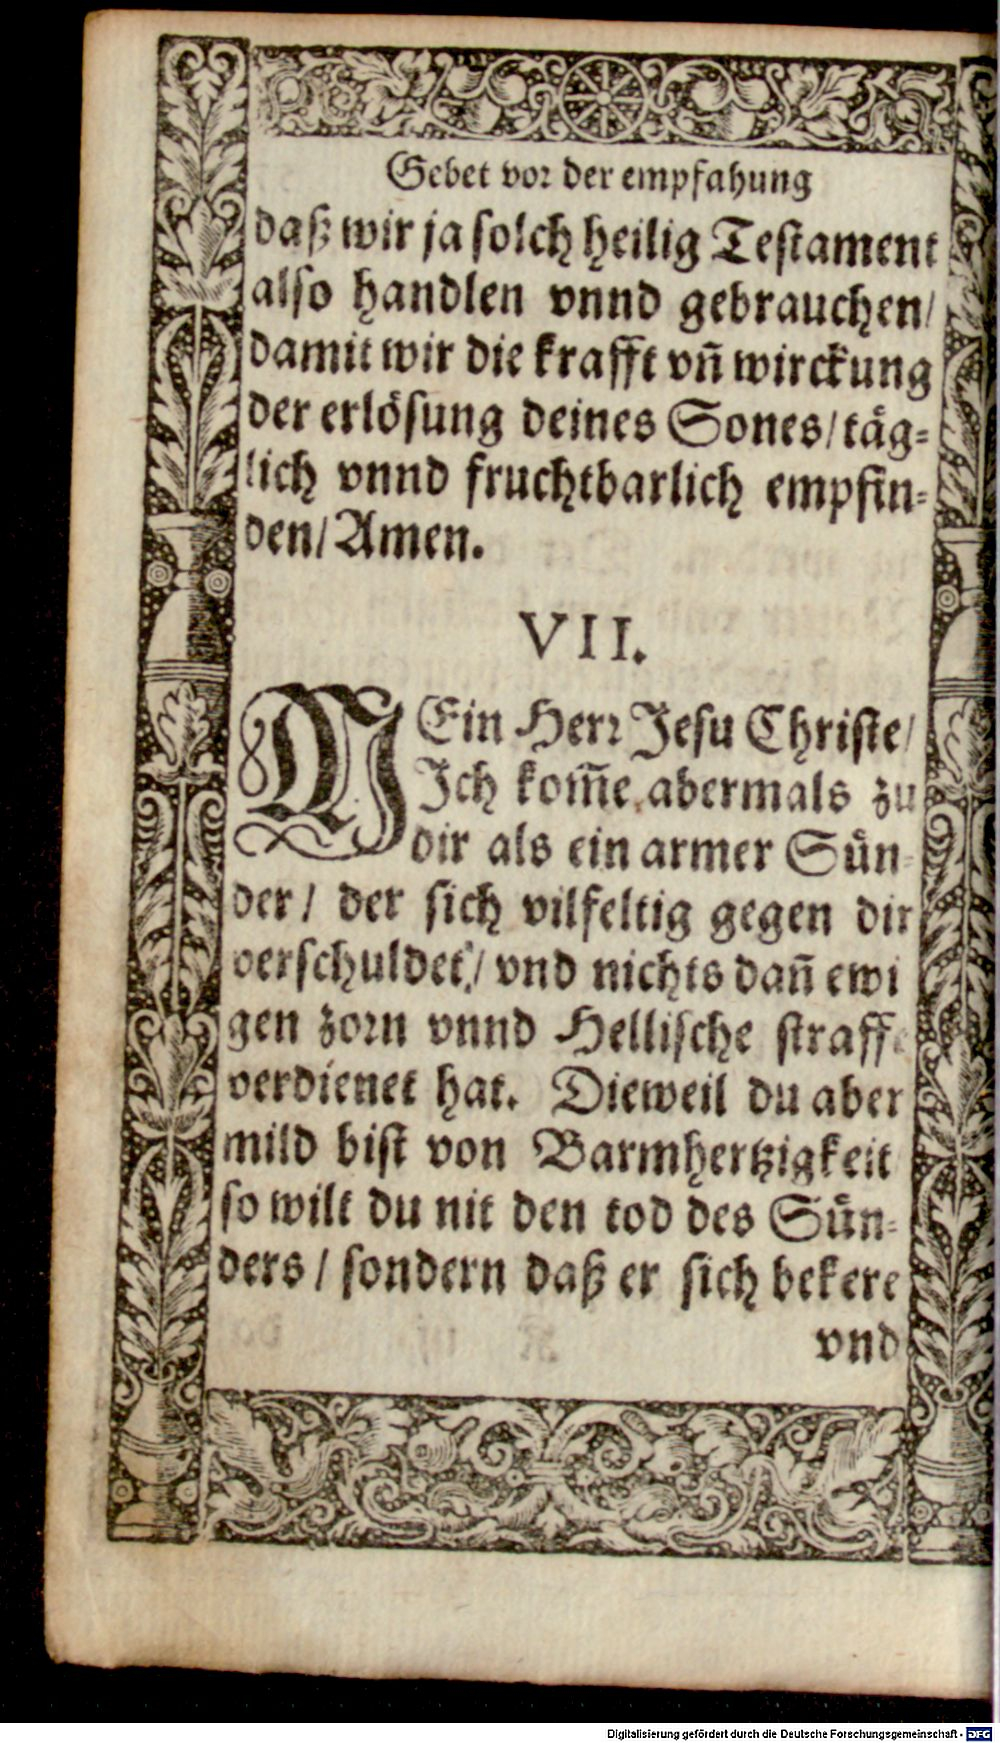 Gebet vor der empfahung
daß wir ja solch heilig Testament
also handlen vnnd gebrauchen/
damit wir die krafft vn̄ wirckung
der erlösung deines Sones/ täg⸗
lich vnnd fruchtbarlich empfin⸗
den/ Amen.
VII.
MEin Herr Jesu Christe/
Ich kom̄e abermals zu
dir als ein armer Sün⸗
der/ der sich vilfeltig gegen dir
verschuldet/ vnd nichts dan̄ ewi
gen zorn vnnd Hellische straffe
verdienet hat. Dieweil du aber
mild bist von Barmhertzigkeit
so wilt du nit den tod des Sün⸗
ders/ sondern daß er sich bekere
vnd
Digitalisierung gefördert durch die Deutsche Forschungsgemeinschaft - DFG